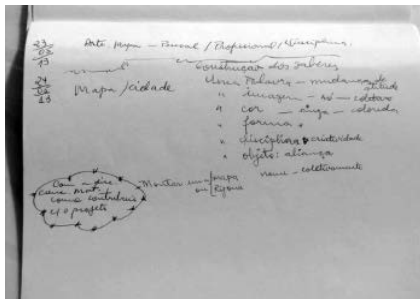 23
03
13
Arte. Mapa - Pessoal / Profissional / Disciplina.
Construção dos Saberes
24
13
Mapa / cidade
Uma Palavra - mudança de atitude
" imagem - só - coletivo
" cor - cinza - colorida
" forma
" disciplina criatividade
" objeto: aliança
nome - coletivamente
Montar um mapa
ou
Com a disc
como
como contribuir
p/ o projeto